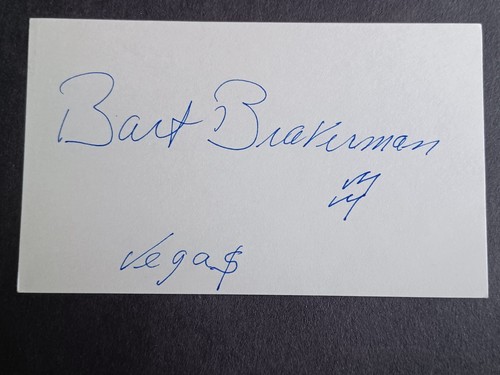 Bart Braverman
Vega$